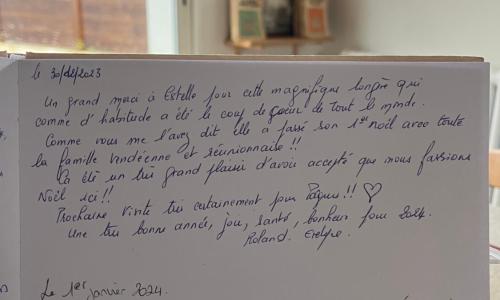 le 30/12/2023
Un grand merci à Estelle pour cette magnifique longère qui
comme d'habitude a été le coup de coeur de tout le monde.
Comme vous me l'avez dit elle a passé son 1er noël avec toute
la famille vendéenne et réunionnaise !!
Ça été un très grand plaisir d'avoir accepté que nous fassions
Noël ici !!
Prochaine visite très certainement pour Pâques !! ♡
Une très bonne année, joie, santé, bonheur pour 2024.
Roland. Evelyne.
Le 1er janvier 2024.